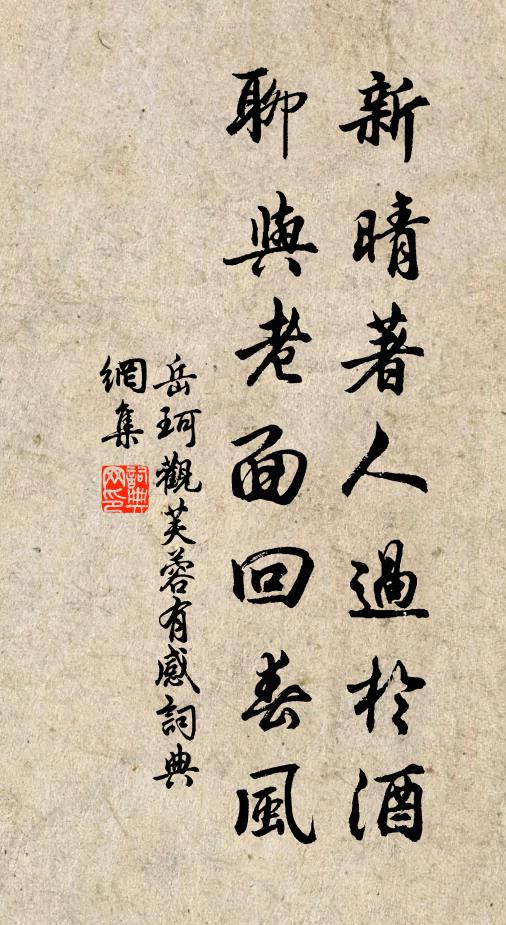 新晴著人過於酒
聊與老面回春風
岳珂觀芙蓉有感詞典
網集
詞典網印